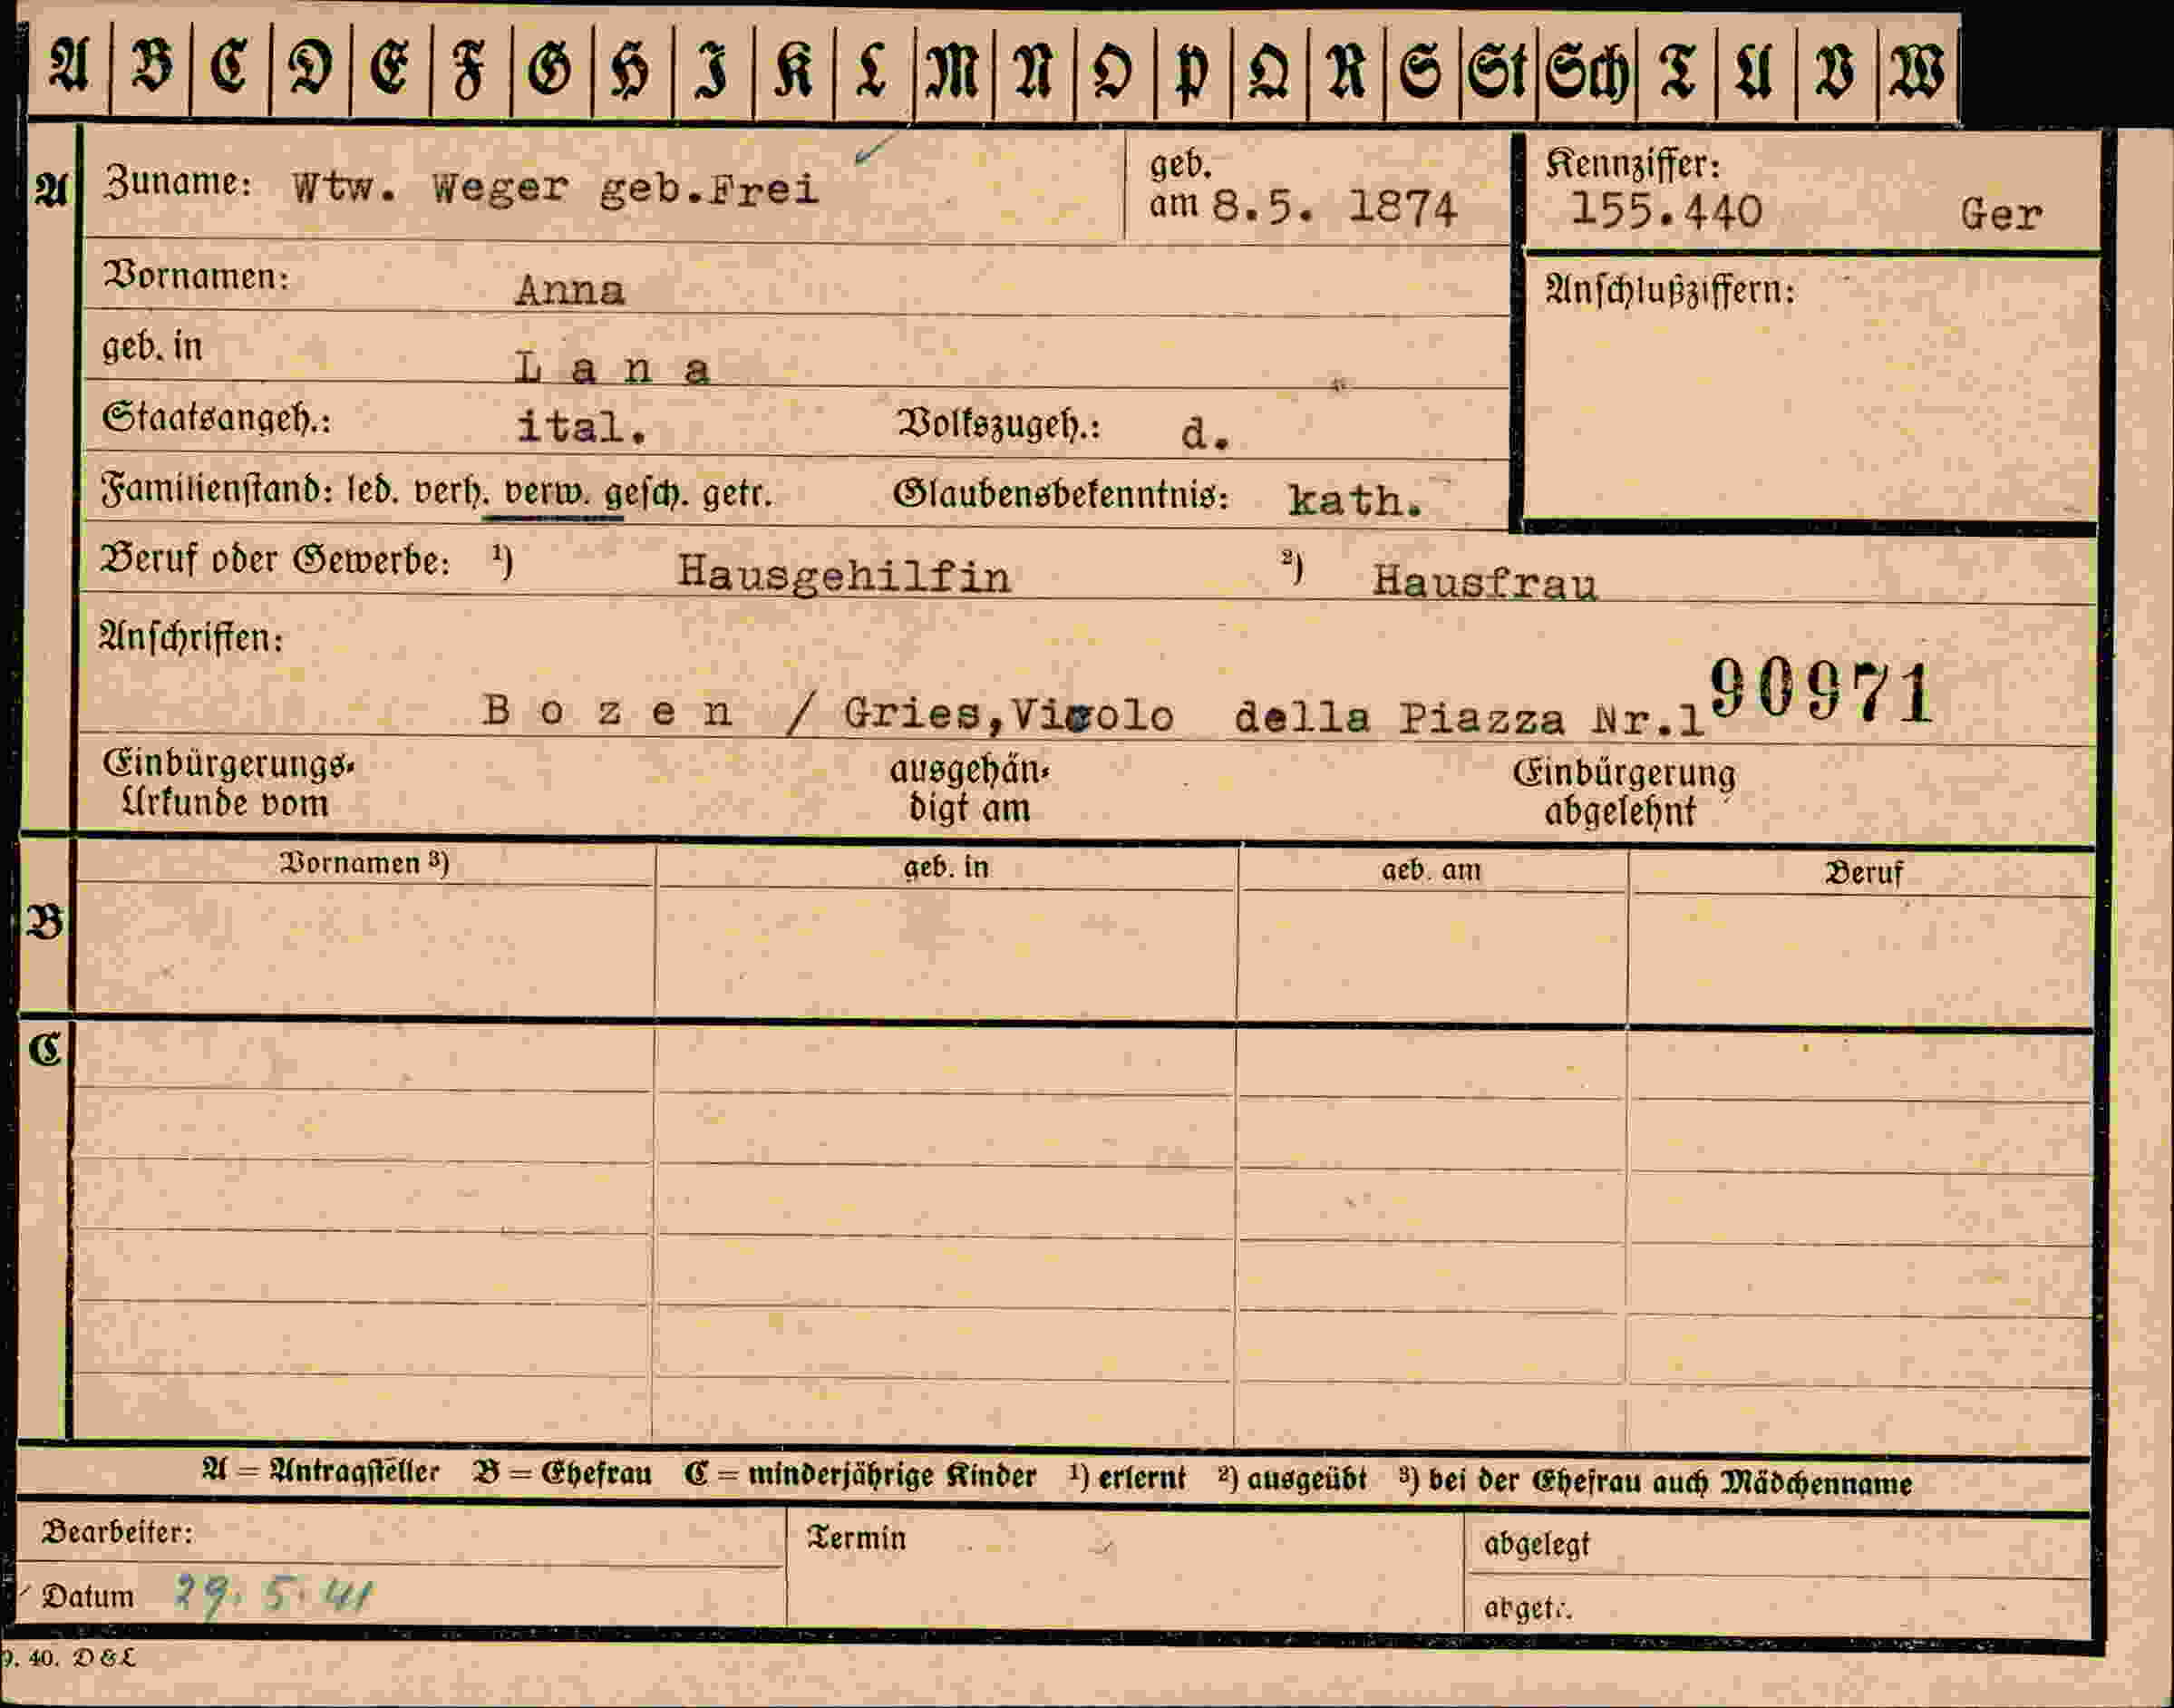 A B C D E F G H I K L M N O P Q R S St Sch T U V W
A Zuname: Wtw. Weger geb.Frei geb. am 8.5. 1874 Kennziffer: 155.440 Ger
Vornamen: Anna Anschlußziffern:
geb. in L a n a
Staatsangeh.: ital. Volkszugeh.: d.
Familienstand: led. verh. verw. gesch. getr. Glaubensbekenntnis: kath.
Beruf oder Gewerbe: ¹) Hausgehilfin ²) Hausfrau
Anschriften:
B o z e n / Gries,Vicolo della Piazza Nr.1 90971
Einbürgerungs- ausgehän- Einbürgerung
Urkunde vom digt am abgelehnt
Vornamen ³) geb. in geb. am Beruf
B
C
A = Antragsteller B = Ehefrau C = minderjährige Kinder ¹) erlernt ²) ausgeübt ³) bei der Ehefrau auch Mädchenname
Bearbeiter: Termin abgelegt
Datum 29. 5. 41 abgetr.
9. 40. D & L